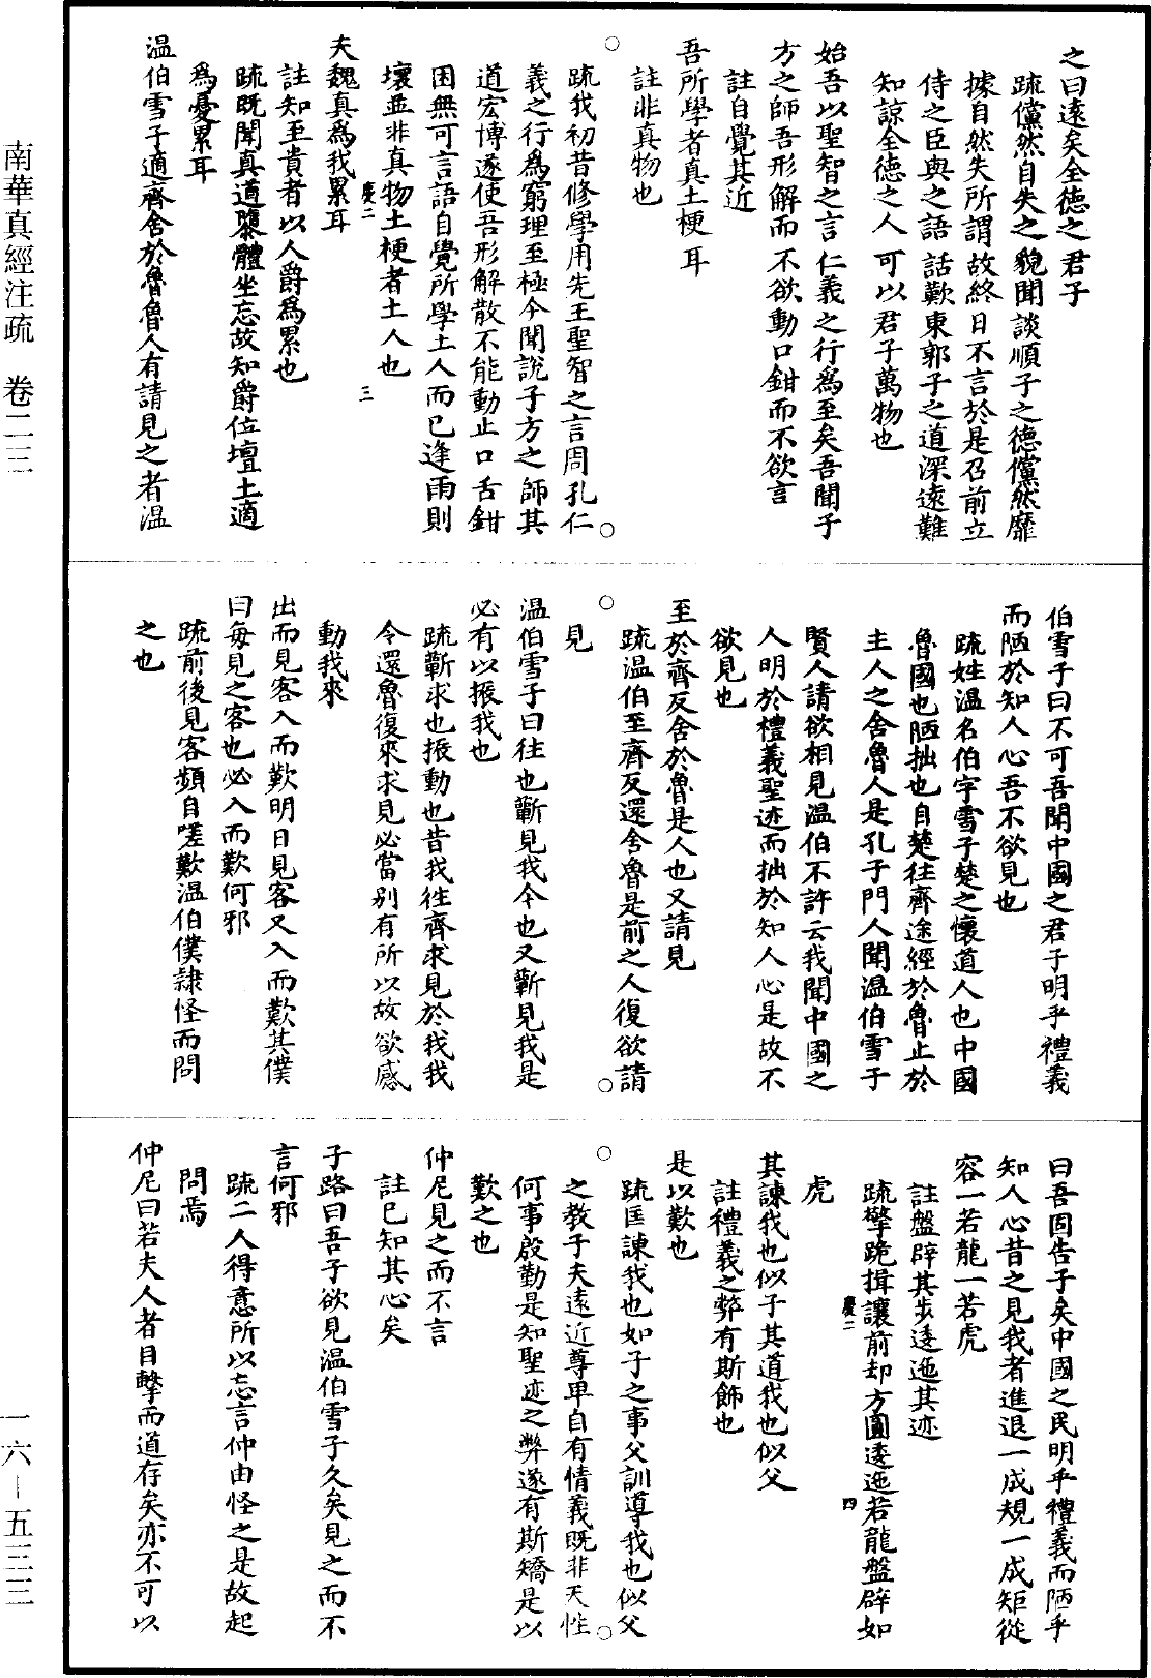 南華真經注疏　卷二三
一六—五三三
之曰遠矣全德之君子
疏儻然自失之貌聞談順子之德儻然靡
據自然失所謂故終日不言於是召前立
侍之臣與之語話歎東郭子之道深遠難
知諒全德之人可以君子萬物也
始吾以聖智之言仁義之行爲至矣吾聞子
方之師吾形解而不欲動口鉗而不欲言
註自覺其近
吾所學者真土梗耳
註非真物也
疏我初昔修學用先王聖智之言周孔仁
義之行爲窮理至極今聞說子方之師其
道宏博遂使吾形解散不能動止口舌鉗
困無可言語自覺所學土人而已逢雨則
壞並非真物土梗者土人也
慶二　三
夫魏真爲我累耳
註知至貴者以人爵爲累也
疏既聞真道隳體坐忘故知爵位壇土適
爲憂累耳
温伯雪子適齊舍於魯魯人有請見之者温
伯雪子曰不可吾聞中國之君子明乎禮義
而陋於知人心吾不欲見也
疏姓温名伯字雪子楚之懷道人也中國
魯國也陋拙也自楚往齊途經於魯止於
主人之舍魯人是孔子門人聞温伯雪子
賢人請欲相見温伯不許云我聞中國之
人明於禮義聖迹而拙於知人心是故不
欲見也
至於齊反舍於魯是人也又請見
疏温伯至齊反還舍魯是前之人復欲請
見
温伯雪子曰往也蘄見我今也又蘄見我是
必有以振我也
疏蘄求也振動也昔我往齊求見於我我
今還魯復來求見必當别有所以故欲感
動我來
出而見客入而歎明日見客又入而歎其僕
曰每見之客也必入而歎何邪
疏前後見客頻自嗟歎温伯僕隸怪而問
之也
曰吾固告子矣中國之民明乎禮義而陋乎
知人心昔之見我者進退一成規一成矩從
容一若龍一若虎
註盤辟其步逶迤其迹
疏擎跪揖讓前却方圓逶迤若龍盤辟如
慶二　四
虎
其諫我也似子其道我也似父
註禮義之弊有斯飾也
是以歎也
疏匡諫我也如子之事父訓導我也似父
之教子夫遠近尊卑自有情義既非天性
何事殷勤是知聖迹之弊遂有斯矯是以
歎之也
仲尼見之而不言
註已知其心矣
子路曰吾子欲見温伯雪子久矣見之而不
言何邪
疏二人得意所以忘言仲由怪之是故起
問焉
仲尼曰若夫人者目擊而道存矣亦不可以